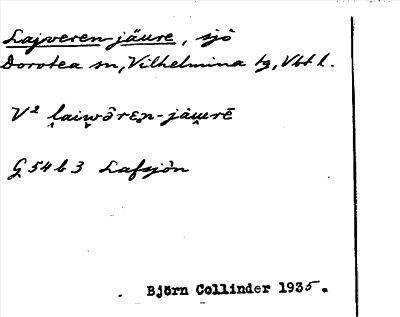 Lajveren-jäure, sjö
Dorotea sn, Vilhelmina tg, Vbt l.
V² l̯aiw̯ɔ̄rɛn̯-jäu̯rē
G 54 b 3 Lafsjön
Björn Collinder 1935.